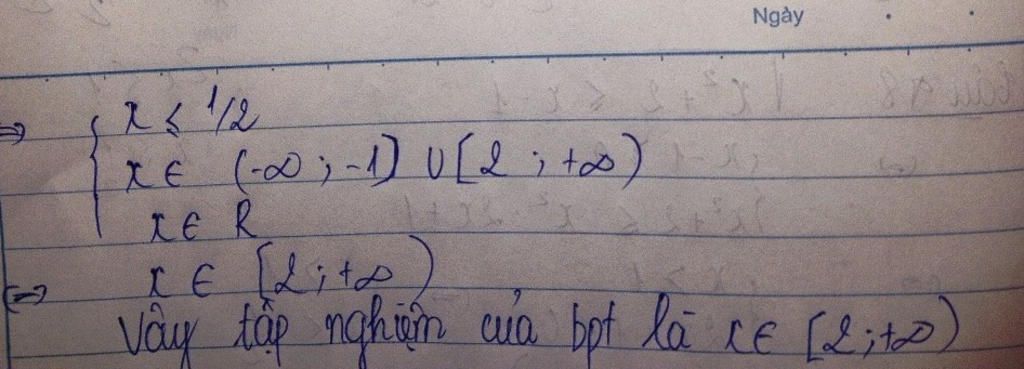 Ngày
=> { x ≤ 1/2
x ∈ (-∞ ; -1] ∪ [2 ; +∞)
x ∈ R
<=> x ∈ [2 ; +∞)
Vậy tập nghiệm của bpt là x ∈ [2 ; +∞)